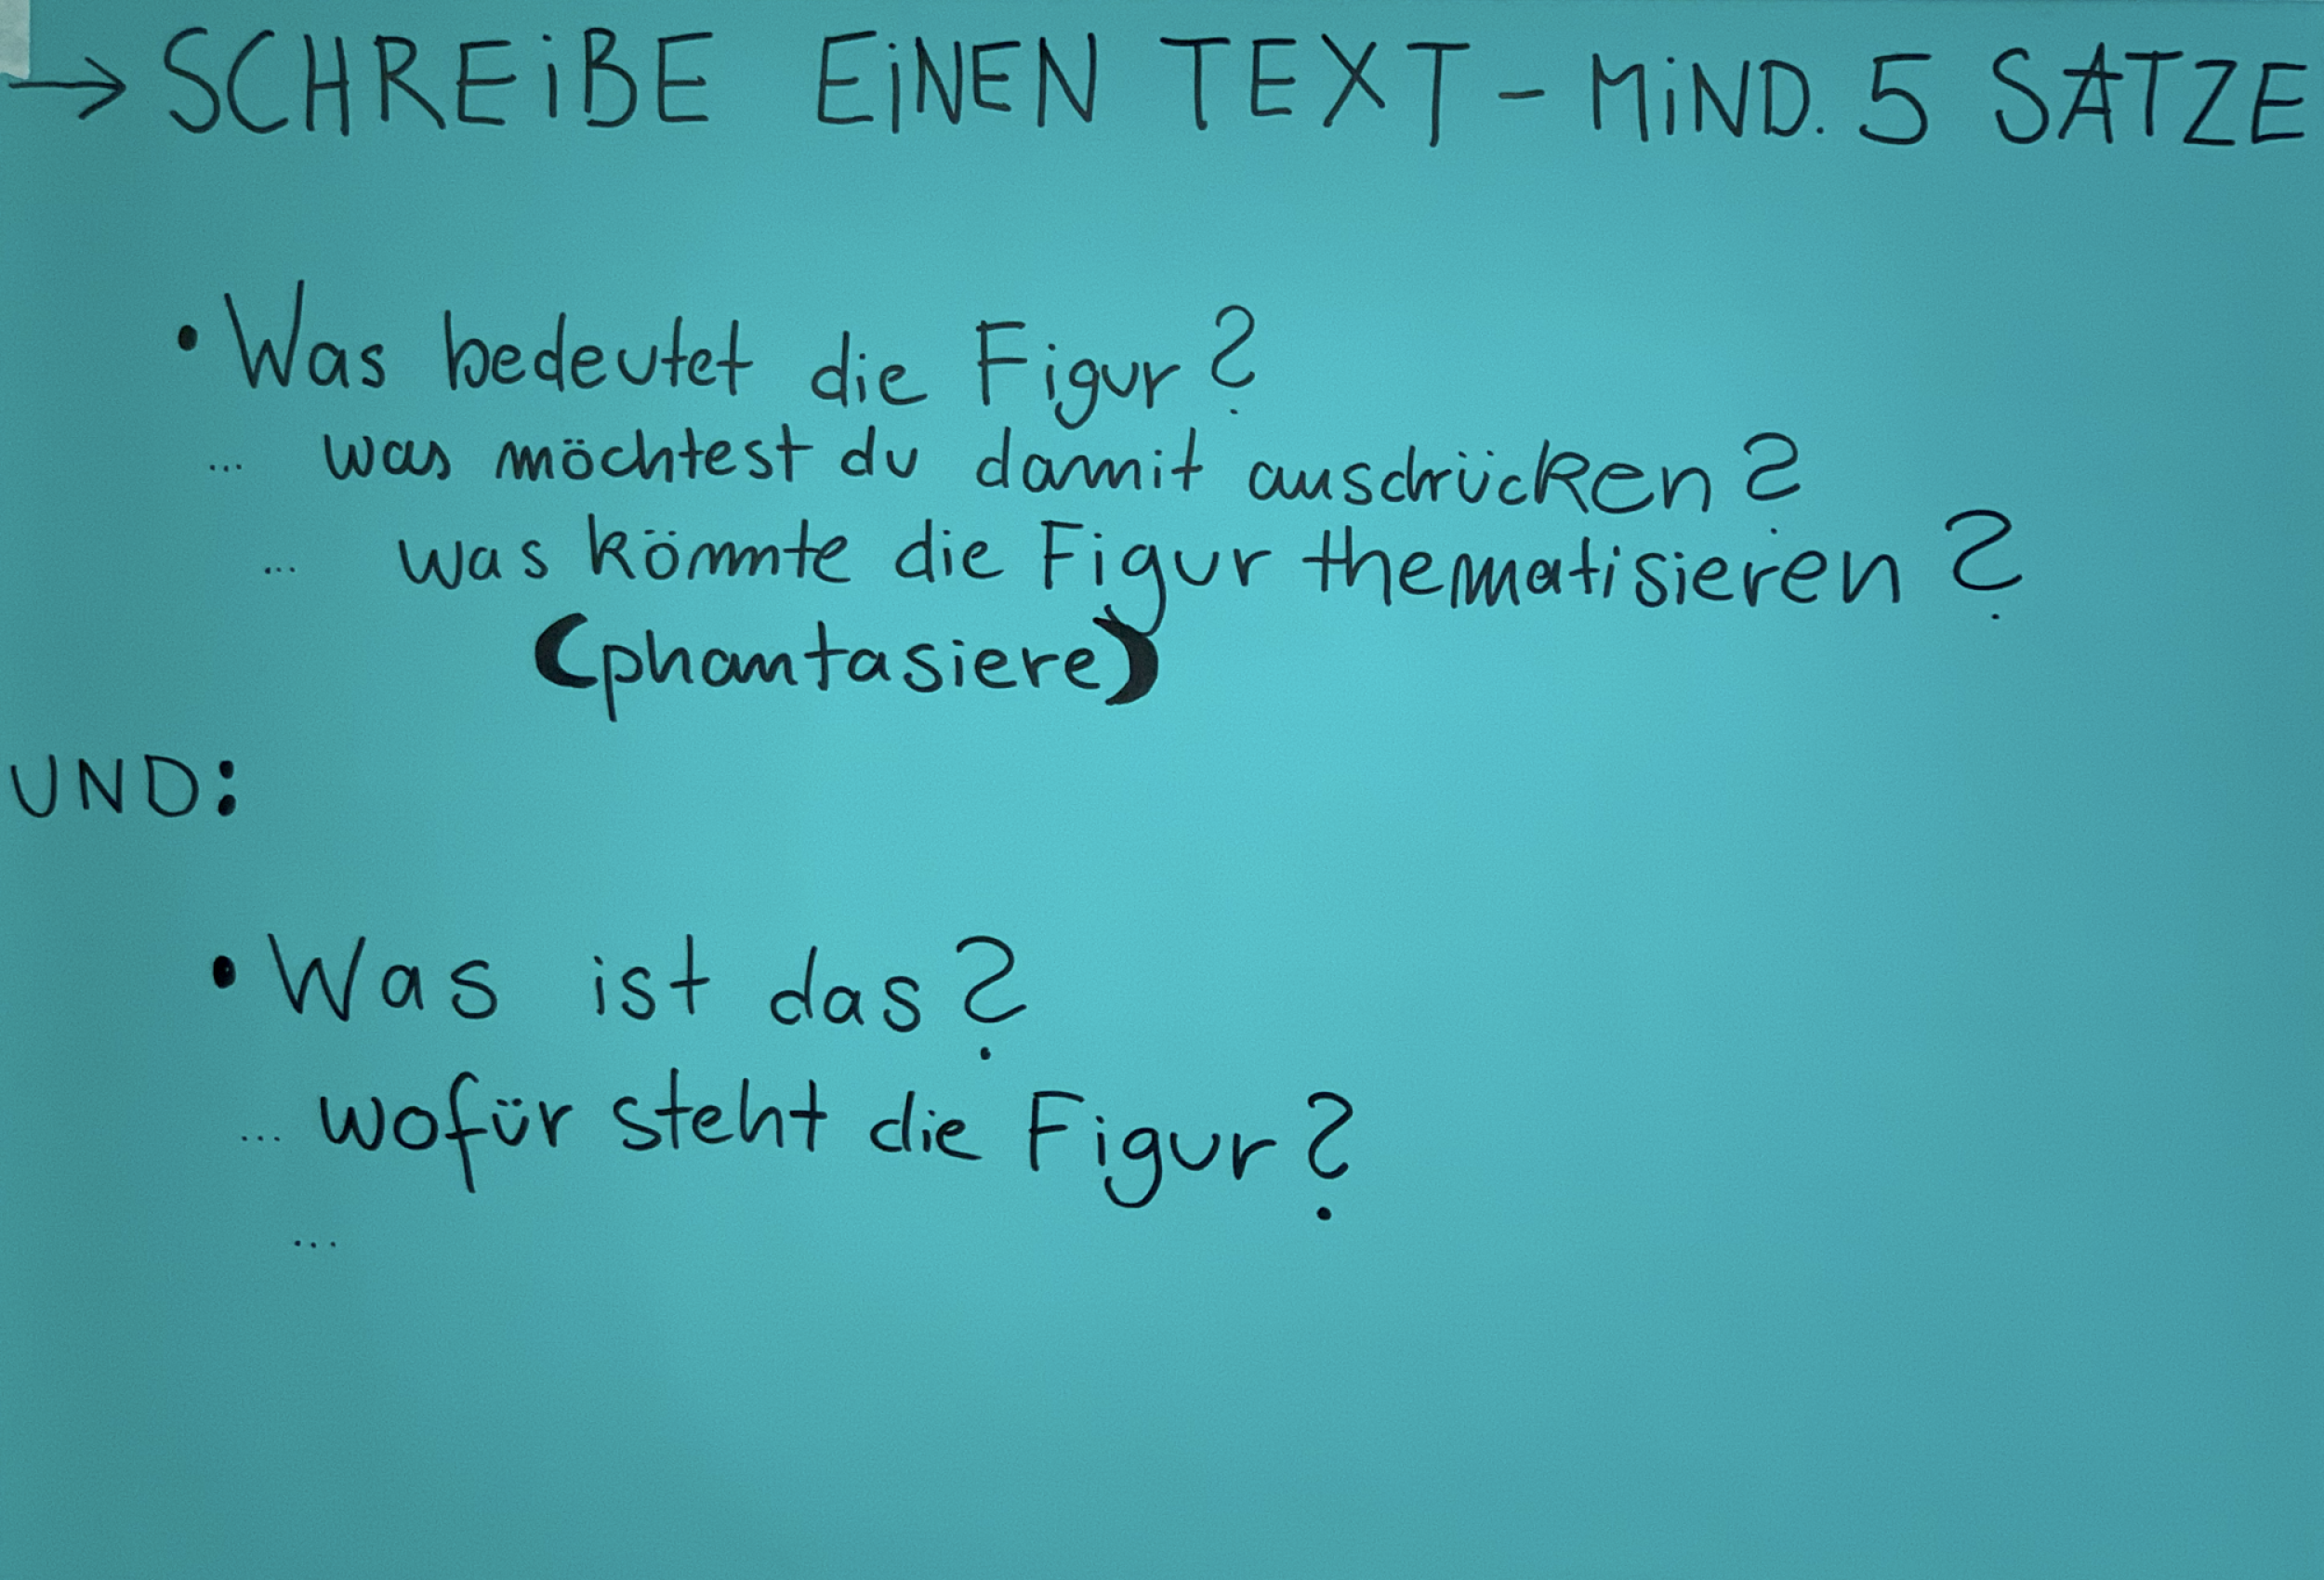 → SCHREiBE EiNEN TEXT - MiND. 5 SÄTZE
• Was bedeutet die Figur?
... was möchtest du damit ausdrücken?
... was könnte die Figur thematisieren?
(phantasiere)
UND:
• Was ist das?
... wofür steht die Figur?
...